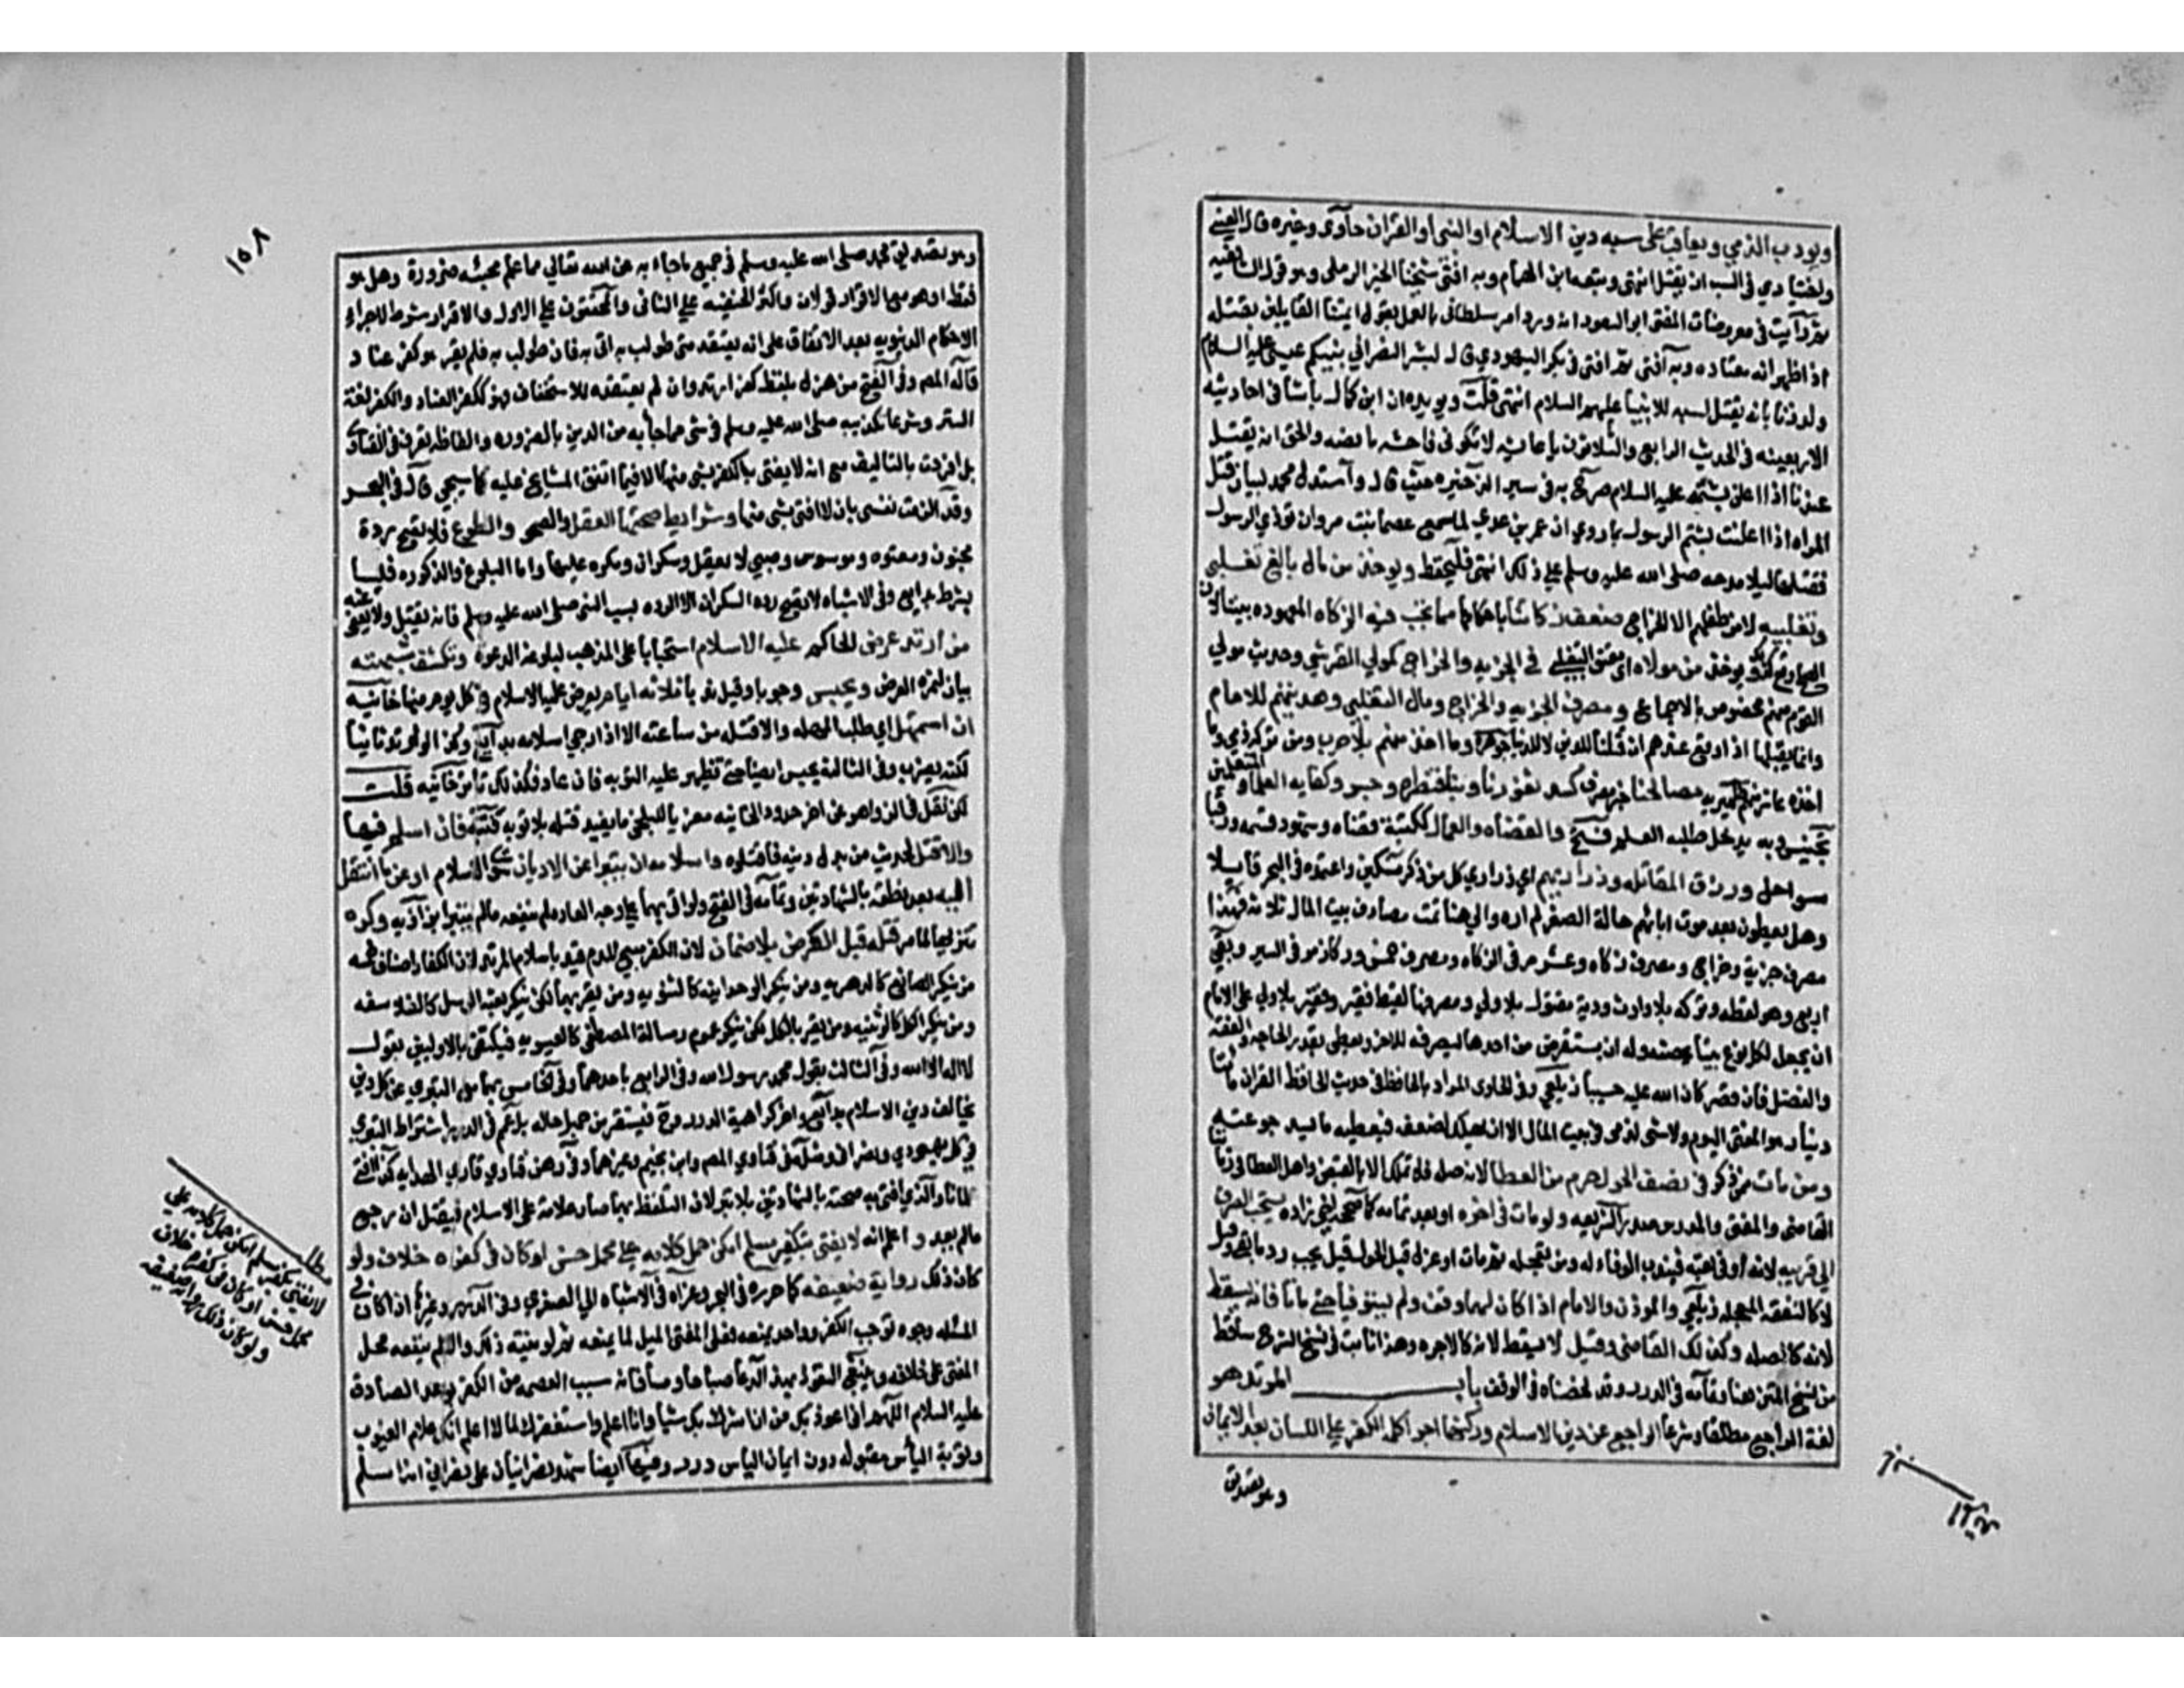 ويودب الذمي ويعاقب على سبه دين الاسلام او النبي او القران حاوى وغيره قال العيني
واختياري في السب ان يقتل انتهى وتبعه ابن الهمام وبه افتى شيخنا الخير الرملي وهو قول الشافعيه
ثم رايت في معروضات المفتي ابو السعود انه ورد امر سلطاني بالعمل بقول ايمتنا القايلين بقتله
اذا ظهر انه معتاده وبه افتى ثم افتى في بكر اليهودي قال لبشر النصراني نبيكم عيسى عليه السلام
ولد زنا بانه يقتل لسبه للانبيا عليهم السلام انتهى قلت ويويده ان ابن كمال باشا في احاديثه
الاربعينه في الحديث الرابع والثلاثون يا عايشه لا تكوني فاحشه ما نصه والحق انه يقتل
عندنا اذا اعلن بشتمه عليه السلام صرح به في سير الذخيره حيث قال واستدل محمد لبيان قتل
المراه اذا اعلنت بشتم الرسول بما روي ان عمر بن عدي لما سمع عصما بنت مروان توذي الرسول
فقتلها ليلا مدحه صلى الله عليه وسلم على ذلك انتهى فليحفظ ويوخذ من مال بالغ تغلبي
وتغلبيه لا من طفلهم الا الخراج ضعف زكاتنا باحكامها مما تجب فيه الزكاه المعهوده بيننا
ويوخذ من مولاه اي معتق التغلبي في الجزيه والخراج كمولي القرشي وحديث مولي
القوم منهم مخصوص بالاجماع ومصرف الجزيه والخراج ومال التغلبي وهديتهم للامام
وانما يقبلها اذا وقع عندهم ان قتالنا للدين لا للدنيا جوهره وما اخذ منهم بلا حرب ومن تركة ذمي وما
اخذه عاشر منهم ظهيريه مصالحنا خبر مصرف كسد ثغورنا وبنا قنطره وجسر وكفايه العلما والمتعلمين
تجنيس وبه يدخل طلبه العلم فتح والقضاه والعمال ككتبة قضاه وشهود قسمه ورقبا
سواحل ورزق المقاتله وذراريهم اي ذراري كل من ذكر مسكين واعتمده في البحر قايلا
وهل يعطون بعد موت ابائهم حالة الصغر لم اره والي هنا تمت مصارف بيت المال ثلاثه فهذا
مصرف جزية وخراج ومصرف زكاه وعشر مر في الزكاه ومصرف خمس وركاز مر في السير وبقي
اربع وهو لقطه وتركه بلا وارث ودية مقتول بلا ولي ومصرفها لقيط فقير وفقير بلا ولي على الامام
ان يجعل لكل نوع بيتا يخصه وله ان يستقرض من احدها ليصرفه للاخر ويعطي بقدر الحاجه والفقه
والفضل فان قصر كان الله عليه حسيبا زيلعي وفي الحاوى المراد بالحافظ في حديث لحافظ القران مائتا
دينار هو المفتي اليوم ولا شي لذمي في بيت المال الا ان يهلك لضعف فيعطيه ما يسد جوعته
ومن مات ممن ذكر في نصف الحول حرم من العطا لانه صله فلا تملك الا بالقبض واهل العطا في زماننا
القاضي والمفتي والمدرس صدر الشريعه ولو مات في اخره او بعد تمامه كما صححه اخي زاده يستحب الصرف
الي قريبه لانه اوفى تعبه فيندب الوفاء له ومن تعجله ثم مات او عزل قبل الحول قيل يجب رد ما بقي وقيل
لا كالنفقه المعجله زيلعي والموذن والامام اذا كان لهما وقف ولم يستوفيا حتى ماتا فانه يسقط
لانه كالصله وكذلك القاضي وقيل لا يسقط لانه كالاجره وهذا ثابت في نسخ الشرح ساقط
من نسخ المتن هنا وتمامه في الدرر وقد لخصناه في الوقف باب المرتد هو
لغة الراجع مطلقا وشرعا الراجع عن دين الاسلام وركنها اجرا كلمة الكفر على اللسان بعد الايمان
وهو تصديق
١٥٨
وهو تصديق محمد صلى الله عليه وسلم في جميع ما جاء به عن الله تعالي مما علم مجيئه ضرورة وهل هو
فقط او هو مع الاقرار قولان واكثر الحنفيه على الثاني والمحققون على الاول والاقرار شرط لاجراء
الاحكام الدنيويه بعد الاتفاق على انه يعتقد متى طولب به اتى به فان طولب به فلم يقر هو كفر عناد
قاله المص وفي الفتح من هزل بلفظ كفر ارتد وان لم يعتقده للاستخفاف فهو ككفر العناد والكفر لغة
الستر وشرعا تكذيبه صلى الله عليه وسلم في شي مما جا به من الدين بالضروره والفاظه تعرف في الفتاوى
بل افردت بالتاليف مع انه لا يفتى بالكفر بشي منها الا فيما اتفق المشايخ عليه كما سيجي قال في البحر
وقد الزمت نفسي بان لا افتى بشي منها وشرايط صحتها العقل والصحو والطوع فلا تصح ردة
مجنون ومعتوه وموسوس وصبي لا يعقل وسكران ومكره عليها واما البلوغ والذكوره فليسا
بشرط بدايع وفي الاشباه لا تصح رده السكران الا الرده بسب النبي صلى الله عليه وسلم فانه يقتل ولا يعفى عنه
من ارتد عرض الحاكم عليه الاسلام استحبابا على المذهب لبلوغه الدعوه وتكشف شبهته
بيان لثمرة العرض ويحبس وجوبا وقيل ندبا ثلاثه ايام يعرض عليه الاسلام في كل يوم منها خانيه
ان استمهل اي طلب المهله والا قتله من ساعته الا اذا رجي اسلامه بدايع وكذا لو ارتد ثانيا
لكنه يضرب وفي الثالثة يحبس ايضا حتى تظهر عليه التوبه فان عاد فكذلك تاترخانيه قلت
لكن نقل في الزواهر عن اخر حدود الخانيه معزيا للبلخي ما يفيد قتله بلا توبه كتبته فان اسلم فيها
والا قتل لحديث من بدل دينه فاقتلوه واسلامه ان يتبرا عن الاديان سوى الاسلام او عن ما انتقل
اليه بعد نطقه بالشهادتين وتمامه في الفتح ولو اتى بهما على وجه العاده لم ينفعه مالم يتبرا بزازيه وكره
تنزيها لما مر قتله قبل العرض بلا ضمان لان الكفر مبيح للدم قيد باسلام المرتد لان الكفار اصناف خمسه
من ينكر الصانع كالدهريه ومن ينكر الوحدانيه كالثنويه ومن يقر بهما لكن ينكر بعثة الرسل كالفلاسفه
ومن ينكر الكل كالوثنيه ومن يقر بالكل لكن ينكر عموم رسالة المصطفى كالعيسويه فيكتفى بالاولين بقول
لا اله الا الله وفي الثالث بقول محمد رسول الله وفي الرابع باحدهما وفي الخامس بهما مع التبري عن كل دين
يخالف دين الاسلام بدايع واخر كراهية الدرر وح فيستفسر من جهل حاله بل عمم في الدرر اشتراط التبري
في كل يهودي ونصراني ومثله في فتاوي المص وابن نجيم وغيرهما وفي رهن فتاوي قاري الهدايه كذا افتى
علمانا والذي افتى به صحته بالشهادتين بلا تبر لان التلفظ بهما صار علامة على الاسلام فيقتل ان رجع
مالم يعد واعلم انه لا يفتى بتكفير مسلم امكن حمل كلامه على محمل حسن او كان في كفره خلاف ولو
كان ذلك رواية ضعيفه كما حرره في البحر وعزاه في الاشباه الي الصغرى وفي الدرر وغيرها اذا كان في
المسئله وجوه توجب الكفر وواحد يمنعه فعلى المفتي الميل لما يمنعه ثم لو نيته ذلك والا لم ينفعه حمل
المفتي على خلافه وينبغي التعوذ بهذا الدعا صباحا ومسا فانه سبب العصمه من الكفر بوعد الصادق
عليه السلام اللهم اني اعوذ بك من ان اشرك بك شيا وانا اعلم واستغفرك لما لا اعلم انك علام الغيوب
وتوبة الياس مقبوله دون ايمان الياس درر وفيها ايضا شهد نصرانيان على نصراني انه اسلم
مطلب
لا يفتى بتكفير مسلم امكن حمل كلامه على
محمل حسن او كان في كفره خلاف
ولو كان ذلك رواية ضعيفه